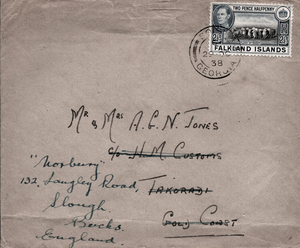 TWO PENCE HALFPENNY
2½ 2½
FALKLAND ISLANDS
38
GEORGIA
Mr & Mrs A.G.N. Jones
c/o H.M. Customs
"Norbury"
132, Langley Road, Takoradi
Slough. Gold Coast
Bucks.
England.